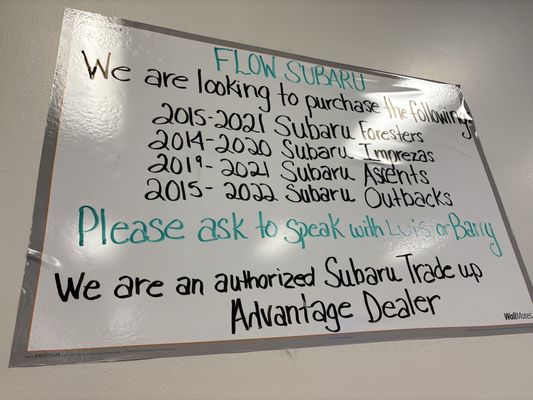 FLOW SUBARU
We are looking to purchase the following:
2015-2021 Subaru Foresters
2014-2020 Subaru Imprezas
2019-2021 Subaru Ascents
2015-2022 Subaru Outbacks
Please ask to speak with Luis or Barry
We are an authorized Subaru Trade up
Advantage Dealer
WallMates